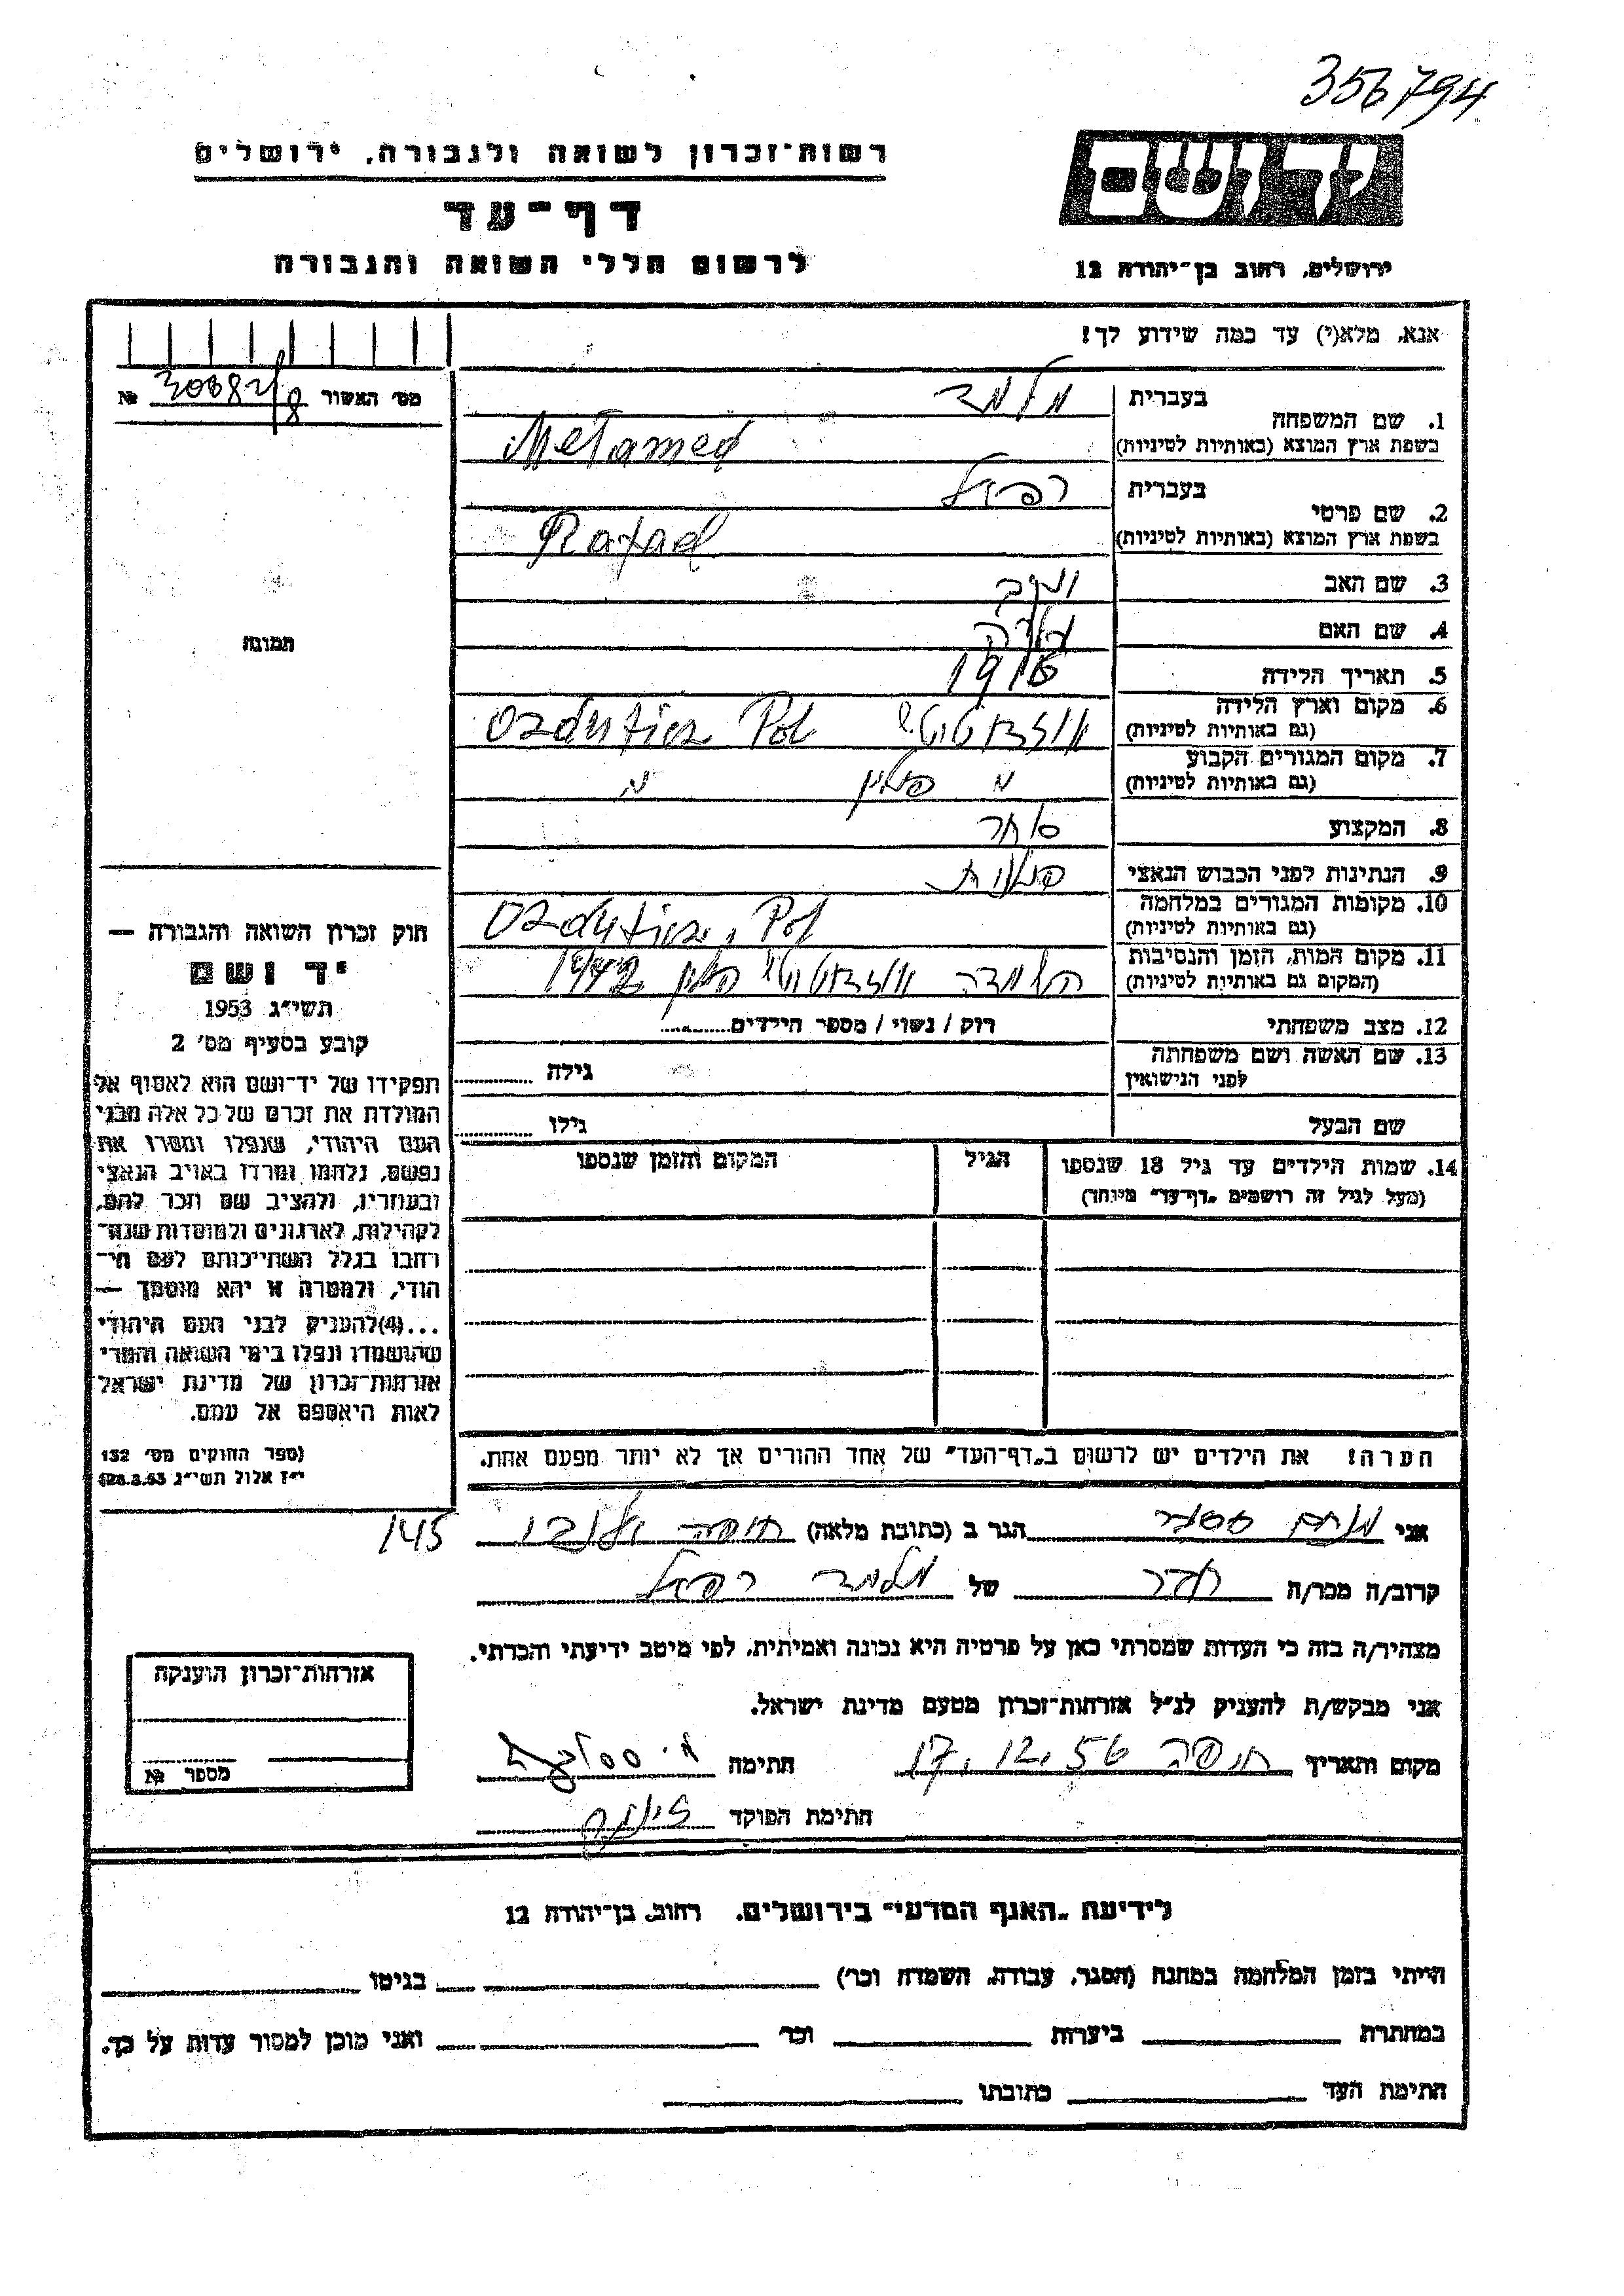 356794
רשות־זכרון לשואה ולגבורה, ירושלים
דף־עד
לרשום חללי השואה והגבורה
יד ושם
ירושלים, רחוב בן־יהודה 12
אנא, מלא(י) עד כמה שידוע לך!
מס׳ האשור № 30082/8
תמונה
1. שם המשפחה
בעברית מלמד
בשפת ארץ המוצא (באותיות לטיניות) Melamed
2. שם פרטי
בעברית רפאל
בשפת ארץ המוצא (באותיות לטיניות) Rafael
3. שם האב
4. שם האם
5. תאריך הלידה 1916
6. מקום וארץ הלידה
(גם באותיות לטיניות) Ozdutice Pol
7. מקום המגורים הקבוע
(גם באותיות לטיניות) פולין
8. המקצוע סוחר
9. הנתינות לפני הכבוש הנאצי פולנית
10. מקומות המגורים במלחמה
(גם באותיות לטיניות) Ozdutice, Pol
11. מקום המות, הזמן והנסיבות
(המקום גם באותיות לטיניות) פולין 1942
12. מצב משפחתי רוק / נשוי / מספר הילדים
13. שם האשה ושם משפחתה
לפני הנישואין גילה
שם הבעל גילו
14. שמות הילדים עד גיל 18 שנספו
(מעל לגיל זה רושמים „דף־עד” מיוחד)
הגיל
המקום והזמן שנספו
חוק זכרון השואה והגבורה —
יד ושם
תשי״ג 1953
קובע בסעיף מס׳ 2
תפקידו של יד־ושם הוא לאסוף אל
המולדת את זכרם של כל אלה מבני
העם היהודי, שנפלו ומסרו את
נפשם, נלחמו ומרדו באויב הנאצי
ובעוזריו, ולהציב שם וזכר להם,
לקהילות, לארגונים ולמוסדות שנח־
רחבו בגלל השתייכותם לעם הי־
הודי, ולמטרה זו יהא מוסמך —
...(4)להעניק לבני העם היהודי
שהושמדו ונפלו בימי השואה והמרי
אזרחות־זכרון של מדינת ישראל
לאות היאספם אל עמם.
(ספר החוקים מס׳ 132
י״ז אלול תשי״ג 28.8.53)
הערה! את הילדים יש לרשום ב„דף־העד” של אחד ההורים אך לא יותר מפעם אחת.
אני מנחם הגר ב (כתובת מלאה) חיפה 145
קרוב/ה מכר/ה חבר של מלמד רפאל
מצהיר/ה בזה כי העדות שמסרתי כאן על פרטיה היא נכונה ואמיתית, לפי מיטב ידיעתי והכרתי.
אני מבקש/ת להעניק לנ״ל אזרחות־זכרון מטעם מדינת ישראל.
מקום ותאריך חיפה 17.12.56 חתימה
חתימת הפוקד
אזרחות־זכרון הוענקה
מספר №
לידיעת „האגף המדעי” בירושלים, רחוב בן־יהודה 12
הייתי בזמן המלחמה במחנה (הסגר, עבודה, השמדה וכו׳) בגיטו
במחתרת ביערות וכו׳ ואני מוכן למסור עדות על כך.
חתימת העד כתובתו